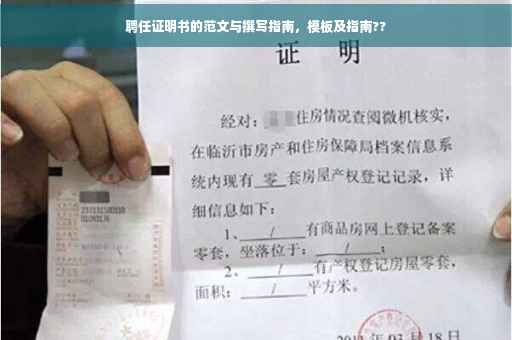 聘任证明书的范文与撰写指南，模板及指南??
证 明
经对：住房情况查阅微机核实，
在临沂市房产和住房保障局档案信息系
统内现有 零 套房屋产权登记记录，详
细信息如下：
1、 / 有商品房网上登记备案
零套，坐落位于： / ；
2、 / 有产权登记房屋零套，
面积： / 平方米。
03月18日